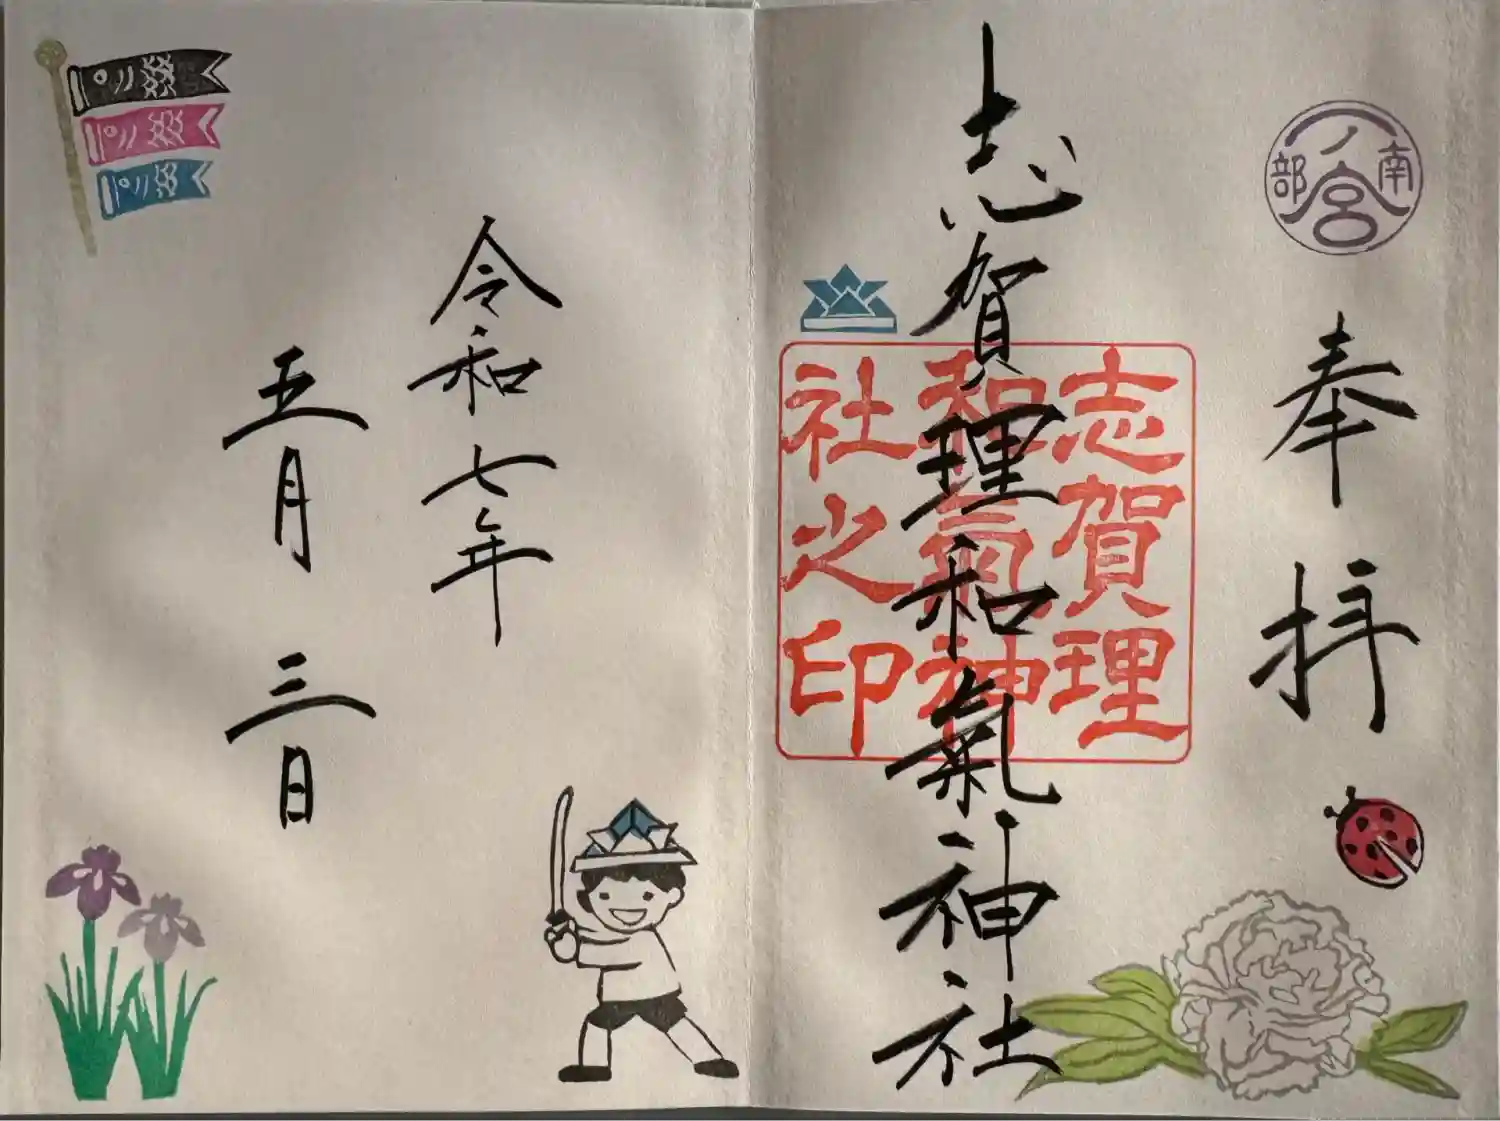 南部一ノ宮
奉拝
志賀理和氣神社
志賀理
和氣神
社之印
令和七年
五月三日